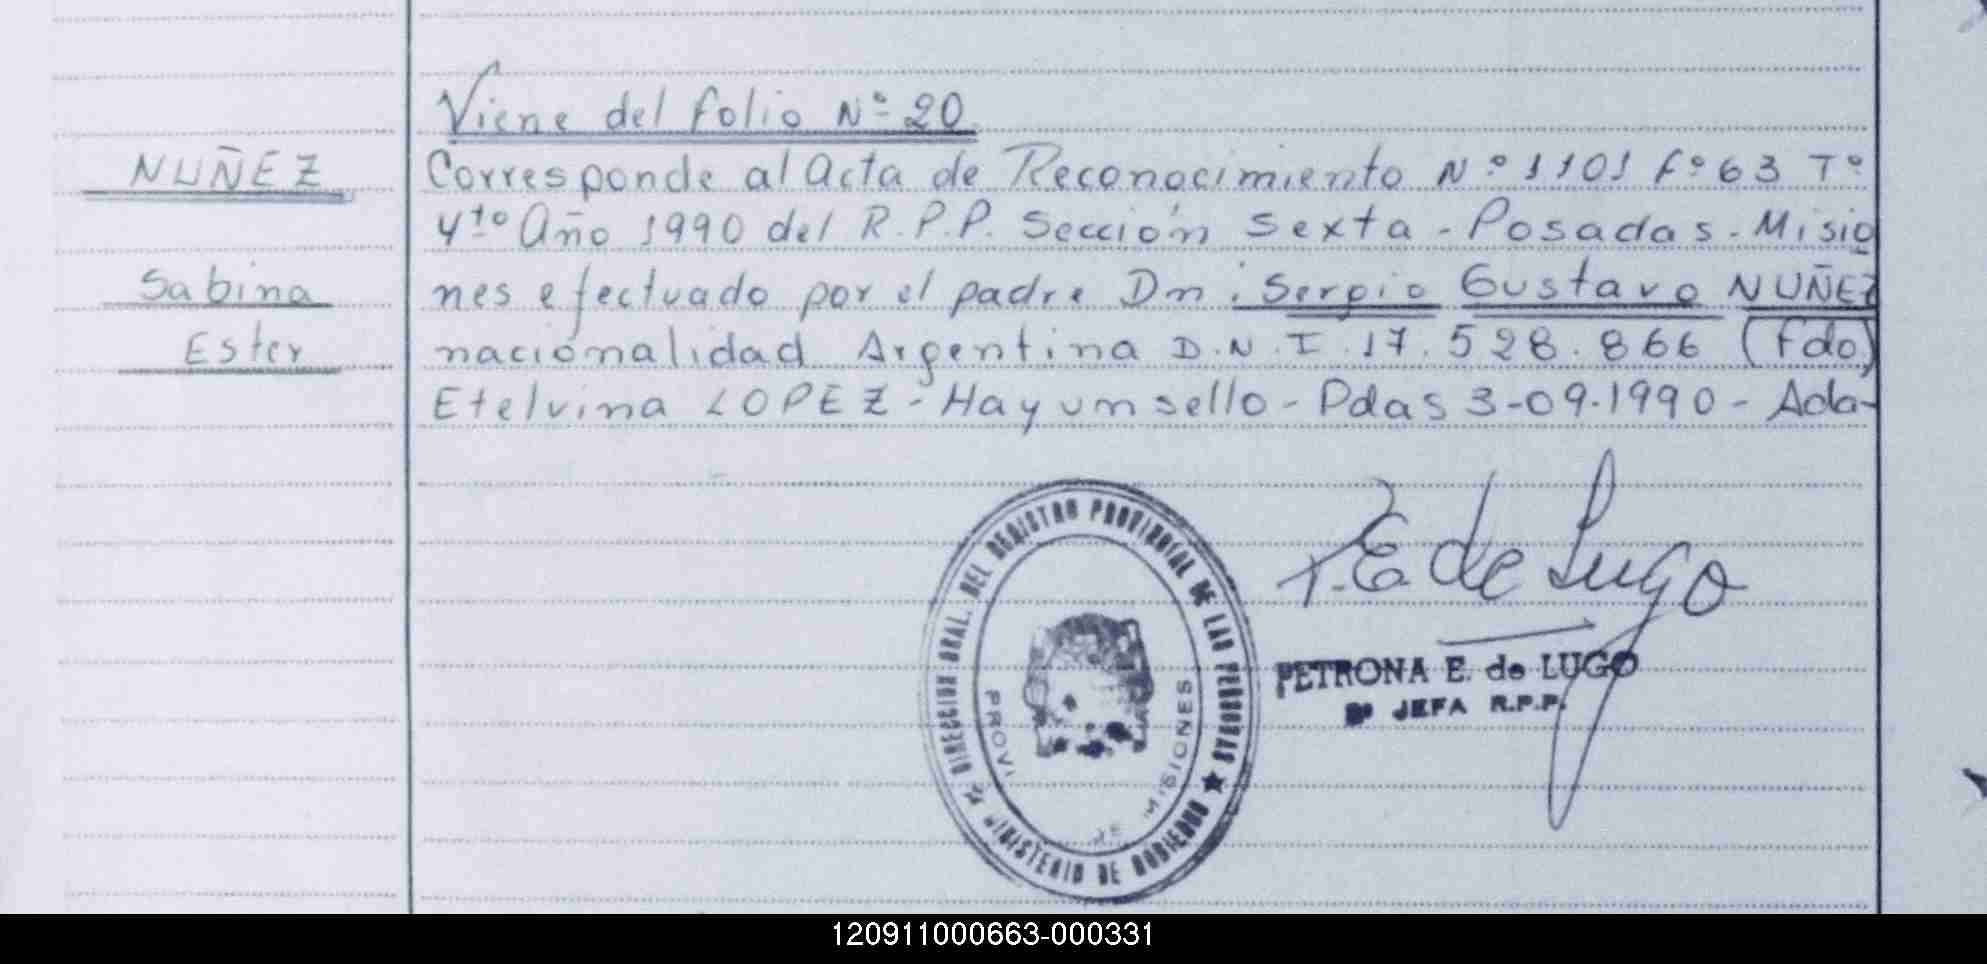 Viene del folio Nº 20
NUÑEZ
Corresponde al Acta de Reconocimiento Nº 1101 Fº 63 Tº
4to Año 1990 del R.P.P. Sección Sexta - Posadas - Misio
Sabina
nes efectuado por el padre Dn: Sergio Gustavo NUÑEZ
Ester
nacionalidad Argentina D.N.I. 17.528.866 (Fdo)
Etelvina LOPEZ - Hay un sello - Pdas 3-09-1990 -
DIRECCION GRAL. DEL REGISTRO PROVINCIAL DE LAS PERSONAS
MINISTERIO DE GOBIERNO
DE MISIONES
P.E. de Lugo
PETRONA E. de LUGO
JEFA R.P.P.
120911000663-000331